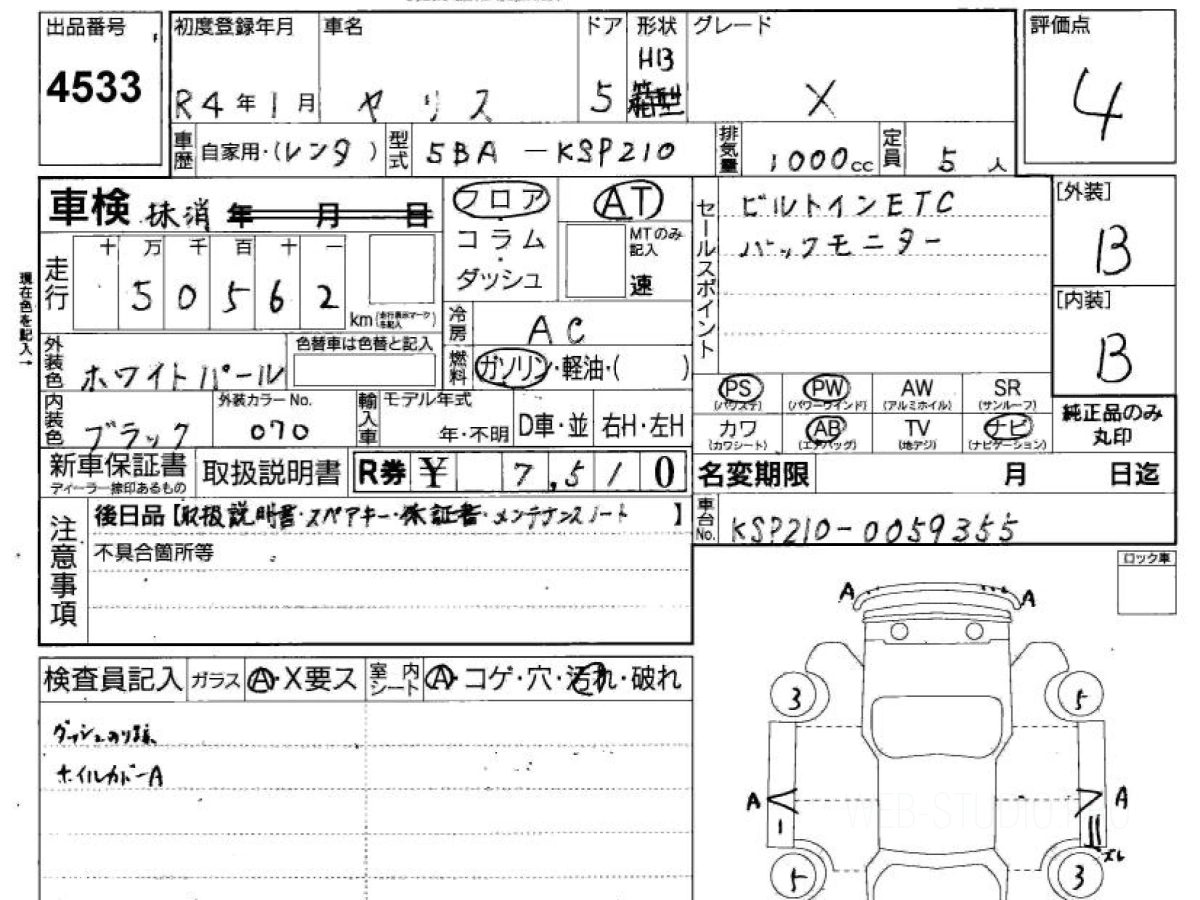 出品番号
4533
初度登録年月
R4年1月
車名
ヤリス
ドア
5
形状
HB
箱型
グレード
X
評価点
4
車歴
自家用・(レンタ)
型式
5BA-KSP210
排気量
1000cc
定員
5人
車検 抹消 年 月 日
フロア
コラム
・
ダッシュ
AT
MTのみ
記入
速
セールスポイント
ビルトインETC
バックモニター
[外装]
B
[内装]
B
現在色を記入→
走行
十 万 千 百 十 一
5 0 5 6 2
km(走行表示マークを記入)
冷房
AC
燃料
ガソリン・軽油・( )
外装色
ホワイトパール
色替車は色替と記入
内装色
ブラック
外装カラーNo.
070
輸入車
モデル年式
年・不明
D車・並
右H・左H
PS
(パワステ)
PW
(パワーウインド)
AW
(アルミホイル)
SR
(サンルーフ)
カワ
(カワシート)
AB
(エアバッグ)
TV
(地デジ)
ナビ
(ナビゲーション)
純正品のみ
丸印
新車保証書
ディーラー捺印あるもの
取扱説明書
R券 ¥ 7,510
名変期限 月 日迄
車台No.
KSP210-0059355
注意事項
後日品【取扱説明書・スペアキー・保証書・メンテナンスノート 】
不具合箇所等
ロック車
検査員記入
ガラス
A・X要ス
室内シート
A・コゲ・穴・汚れ・破れ
ダッシュのり跡
ホイルカバーA
A A
3 5
A A
1
ズレ
5 3
WEB-STUDIO.PRO